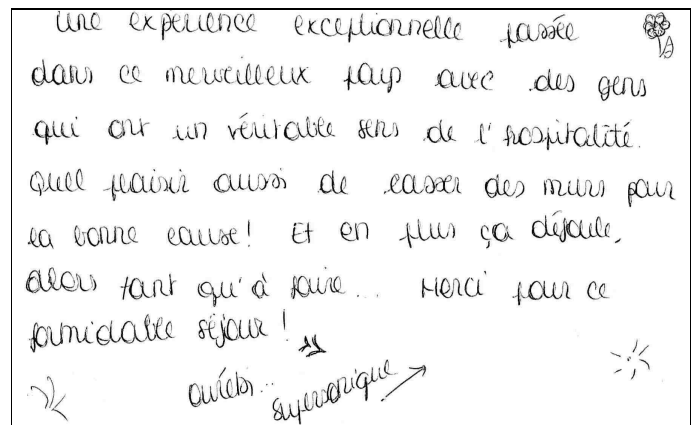 une experience exceptionnelle passée
dans ce merveilleux pays avec des gens
qui ont un véritable sens de l'hospitalité.
Quel plaisir aussi de casser des murs pour
la bonne cause! Et en plus ça défoule,
alors tant qu'à faire... Merci pour ce
formidable séjour!
supersonique